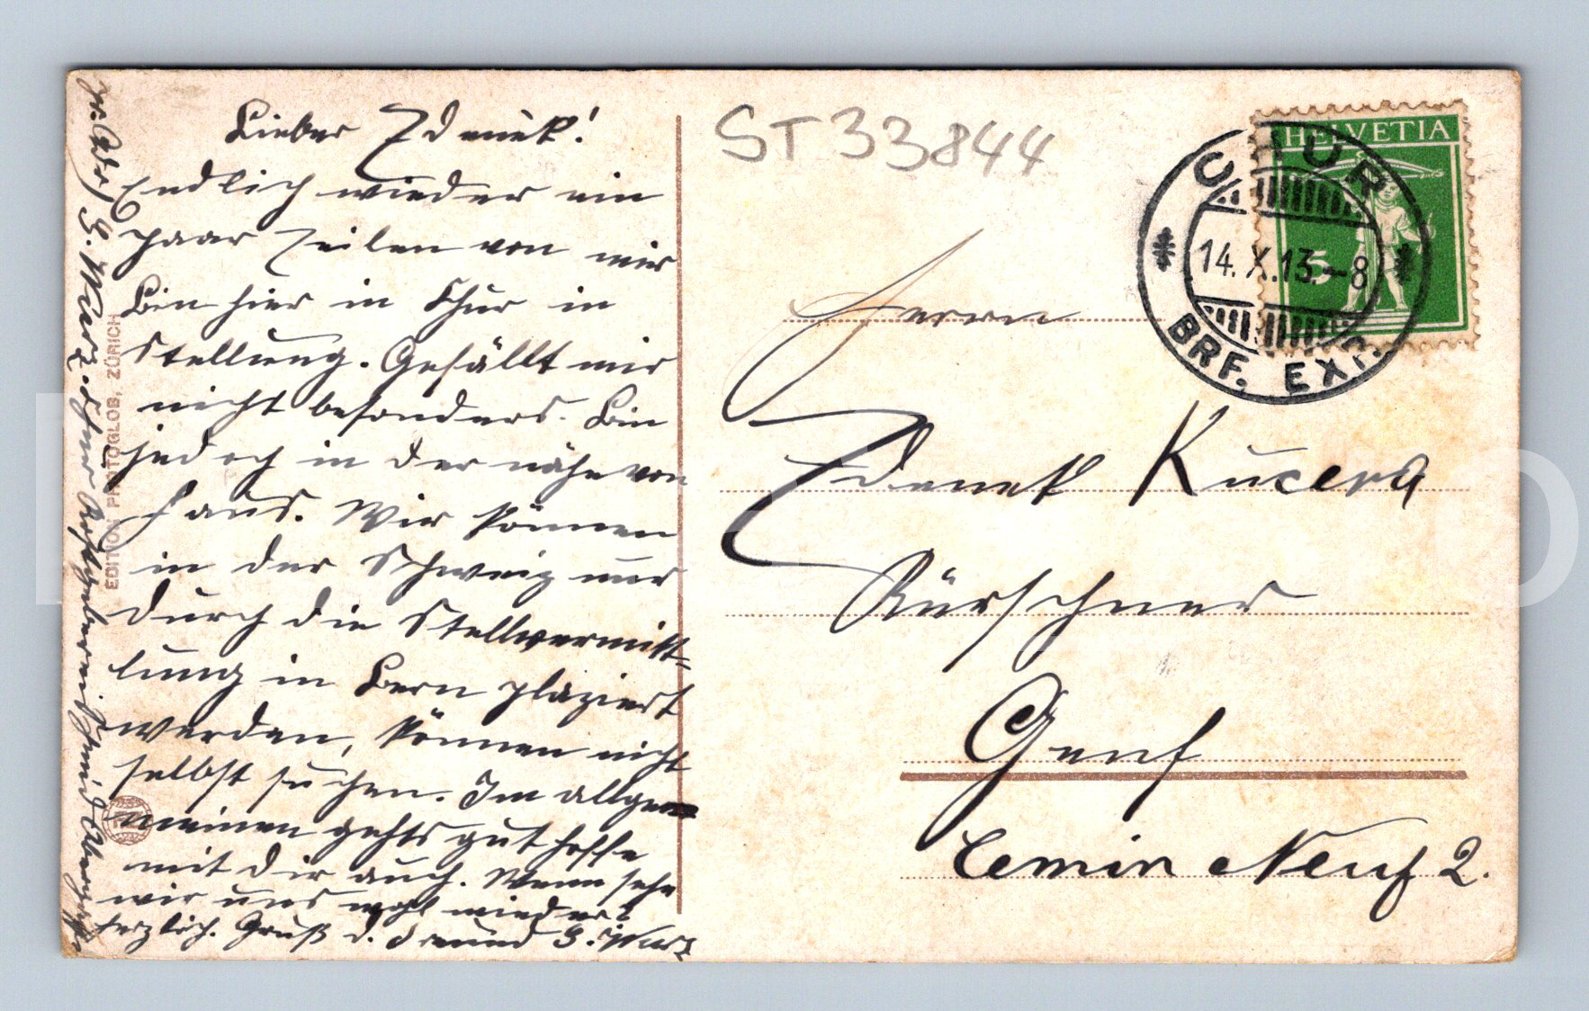 Lieber Zdenek!
Endlich wieder ein
paar Zeilen von mir
Bin hier in Chur in
Stellung. Gefällt mir
nicht besonders. Bin
jedoch in der nähe von
Haus. Wir können
in der Schweiz nur
durch die Stellvermitt-
lung in Bern plaziert
werden, können nicht
selbst suchen. Im allge
meinen gehts gut hoffe
mit dir auch. Wann sehn
wir uns wohl wieder?
herzlich. Gruß d. Freund G. Wurz
G. Wurz. Chur
EDITION PHOTOGLOB, ZÜRICH
ST33844
HELVETIA
5
CHUR
14.X.13.-8
BRF. EXP.
Herrn
Zdenek Kucera
Kürschner
Genf
Cemin Neuf 2.